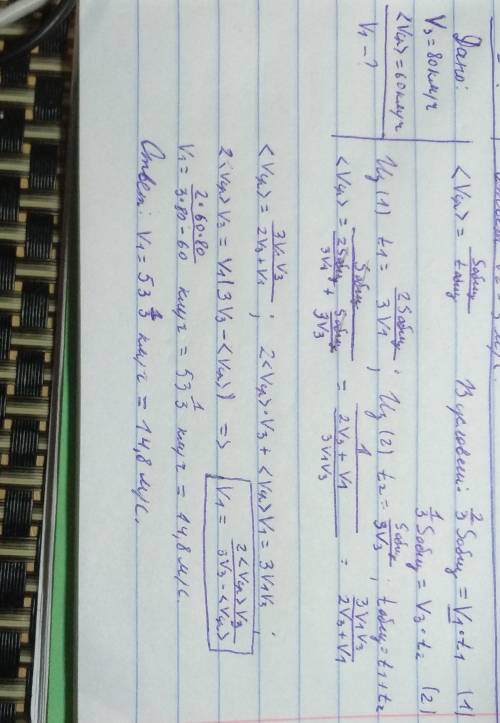 Дано:
V₃ = 80 км/ч
<Vср> = 60 км/ч
V₁ - ?
<Vср> = Sобщ/tобщ В условии: 2/3 Sобщ = V₁·t₁ (1)
1/3 Sобщ = V₃·t₂ (2)
Из (1) t₁ = 2Sобщ/3V₁; Из (2) t₂ = Sобщ/3V₃. tобщ = t₁+t₂
<Vср> = Sобщ/(2Sобщ/3V₁ + Sобщ/3V₃) = 1/((2V₃+V₁)/3V₁V₃) = 3V₁V₃/(2V₃+V₁)
<Vср> = 3V₁V₃/(2V₃+V₁); 2<Vср>·V₃ + <Vср>V₁ = 3V₁V₃;
2<Vср>V₃ = V₁(3V₃ - <Vср>) => V₁ = 2<Vср>V₃/(3V₃-<Vср>)
V₁ = 2·60·80/(3·80-60) км/ч = 53 1/3 км/ч = 14,8 м/с.
Ответ: V₁ = 53 1/3 км/ч = 14,8 м/с.